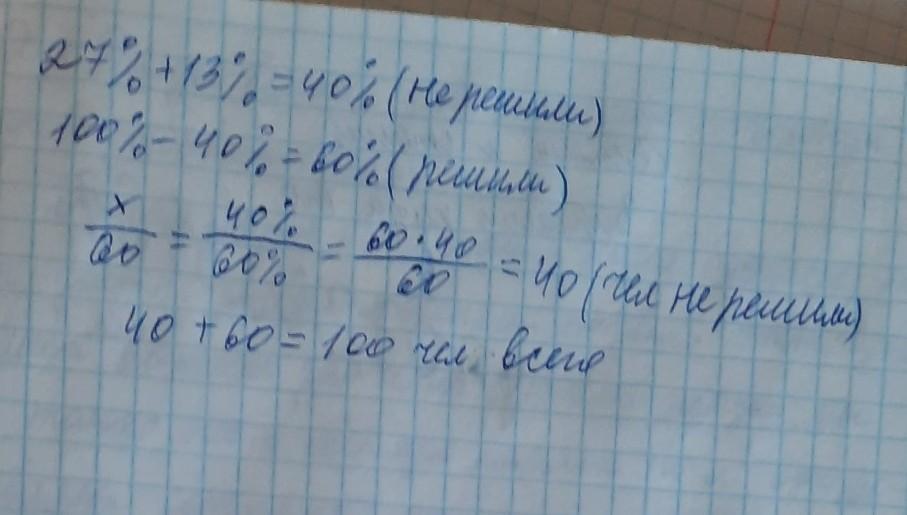 27% + 13% = 40% (не решили)
100% - 40% = 60% (решили)
x/60 = 40%/60% = 60·40/60 = 40 (чел не решили)
40 + 60 = 100 чел. всего